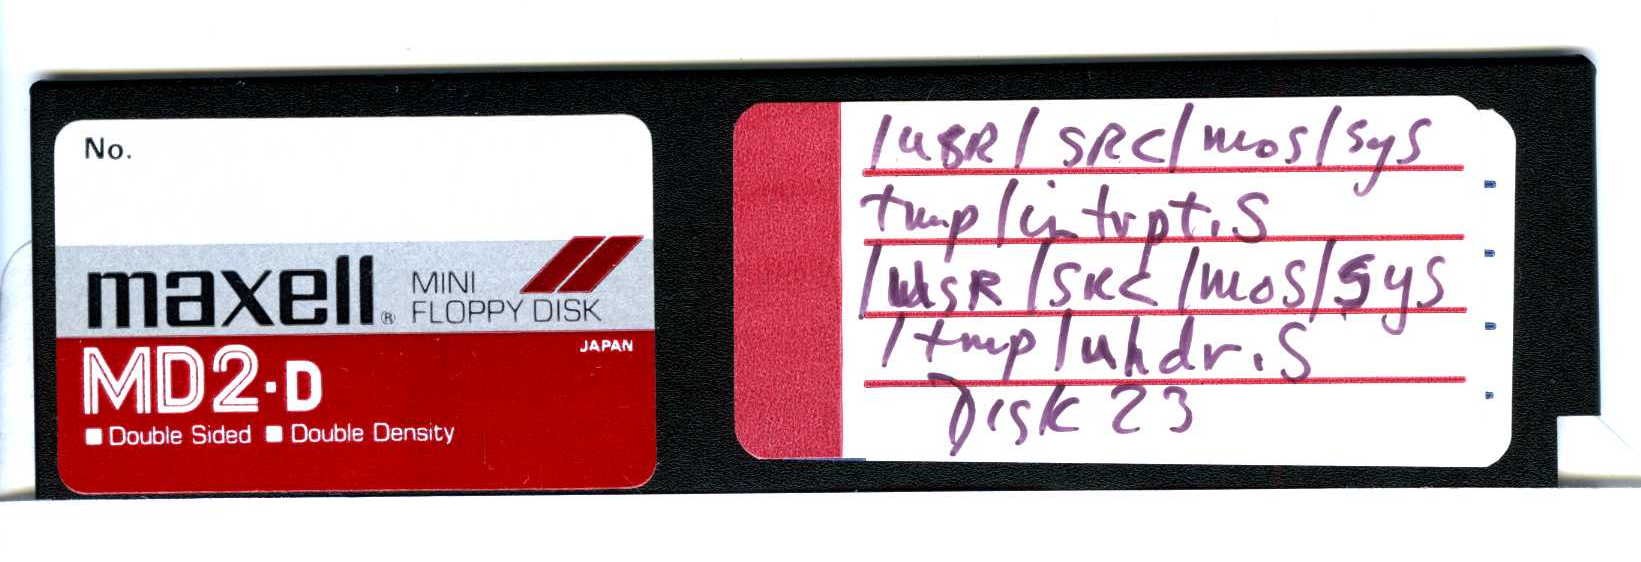 No.
maxell®
MINI
FLOPPY DISK
JAPAN
MD2-D
Double Sided Double Density
/usR/SRC/mos/sys
tmp/intrpt.S
/usR/SRC/mos/sys
/tmp/uhdr.S
DISK 23